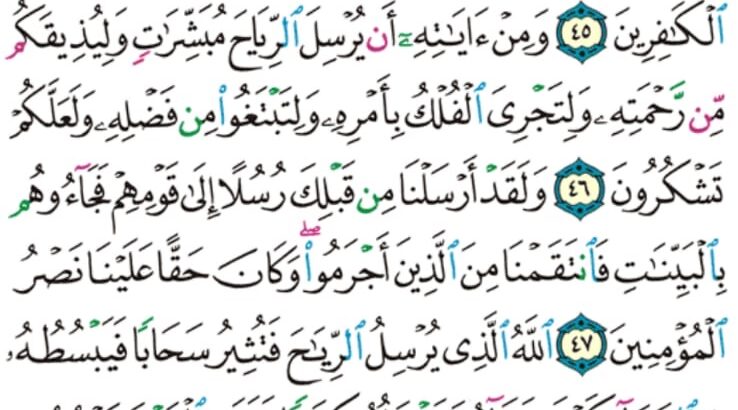 ٱلۡكَٰفِرِينَ ٤٥ وَمِنۡ ءَايَٰتِهِۦٓ أَن يُرۡسِلَ ٱلرِّيَاحَ مُبَشِّرَٰتٖ وَلِيُذِيقَكُم
مِّن رَّحۡمَتِهِۦ وَلِتَجۡرِيَ ٱلۡفُلۡكُ بِأَمۡرِهِۦ وَلِتَبۡتَغُواْ مِن فَضۡلِهِۦ وَلَعَلَّكُمۡ
تَشۡكُرُونَ ٤٦ وَلَقَدۡ أَرۡسَلۡنَا مِن قَبۡلِكَ رُسُلًا إِلَىٰ قَوۡمِهِمۡ فَجَآءُوهُم
بِٱلۡبَيِّنَٰتِ فَٱنتَقَمۡنَا مِنَ ٱلَّذِينَ أَجۡرَمُواْۖ وَكَانَ حَقًّا عَلَيۡنَا نَصۡرُ
ٱلۡمُؤۡمِنِينَ ٤٧ ٱللَّهُ ٱلَّذِي يُرۡسِلُ ٱلرِّيَٰحَ فَتُثِيرُ سَحَابٗا فَيَبۡسُطُهُۥ